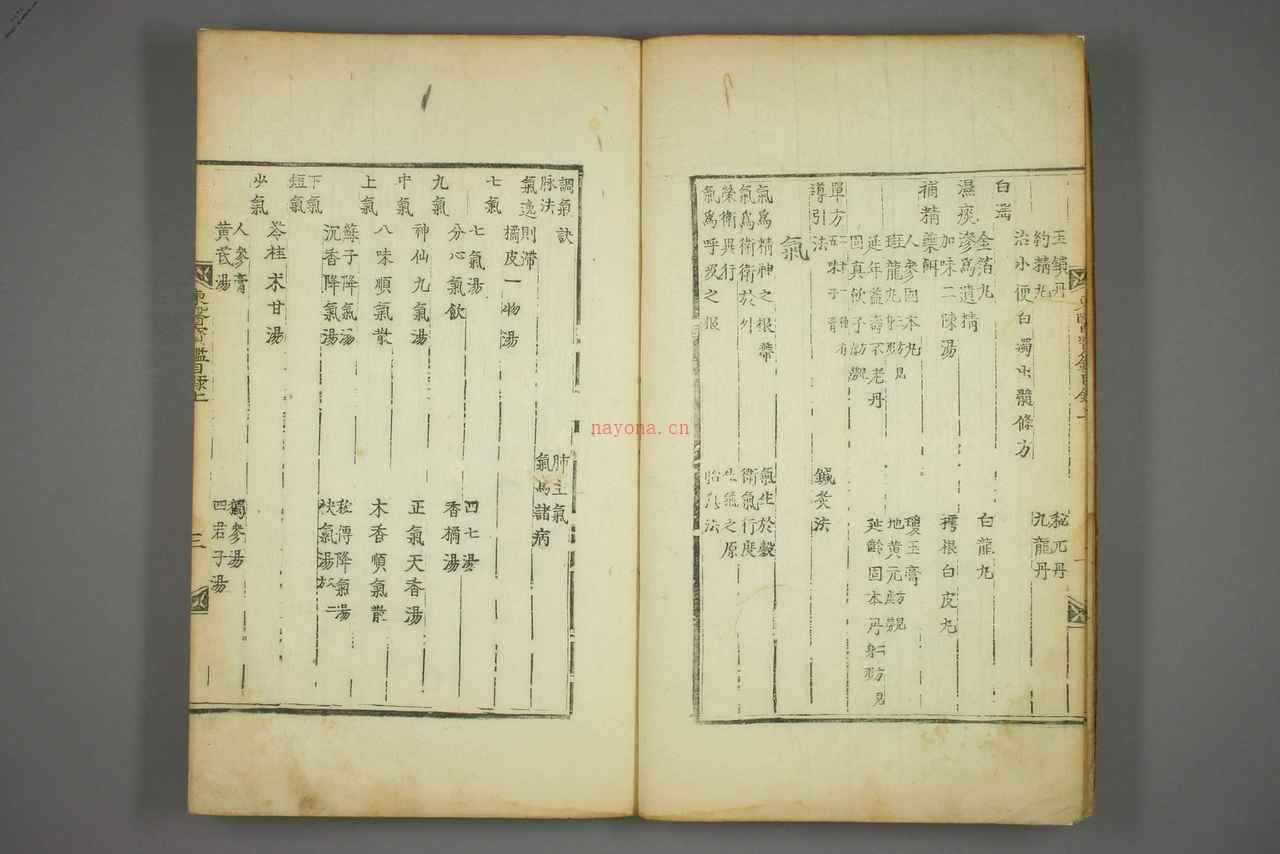 玉鎖丹
秘元丹
約精丸
九龍丹
治小便白濁出髓條方
白淫
金箔丸
白龍丸
濕痰滲爲遺精
加味二陳湯
樗根白皮丸
補精藥餌
人參固本丸
瓊玉膏
斑龍丸
地黃元
延年益壽不老丹
延齡固本丹
單方
五味子膏
導引法
鍼灸法
氣
氣爲精神之根蔕
氣生於穀
氣爲衛衛於外
衛氣行度
榮衛異行
生氣之原
氣爲呼吸之根
胎息法
調氣訣
肺主氣
脉法
氣爲諸病
氣逸則滯
橘皮一物湯
七氣
七氣湯
四七湯
分心氣飮
香橘湯
九氣
神仙九氣湯
正氣天香湯
中氣
八味順氣散
木香順氣散
上氣
蘇子降氣湯
秘傳降氣湯
沉香降氣湯
快氣湯
下氣
短氣
苓桂朮甘湯
少氣
人參膏
獨參湯
黃芪湯
四君子湯
東醫寶鑑目錄上
三
nayona.cn